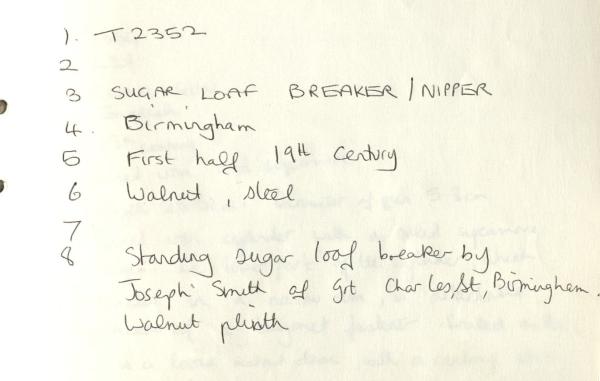 1. T2352
2
3 SUGAR LOAF BREAKER/NIPPER
4. Birmingham
5 First half 19th Century
6 Walnut, steel
7
8 Standing sugar loaf breaker by
Joseph Smith of Grt Charles St, Birmingham.
Walnut plinth